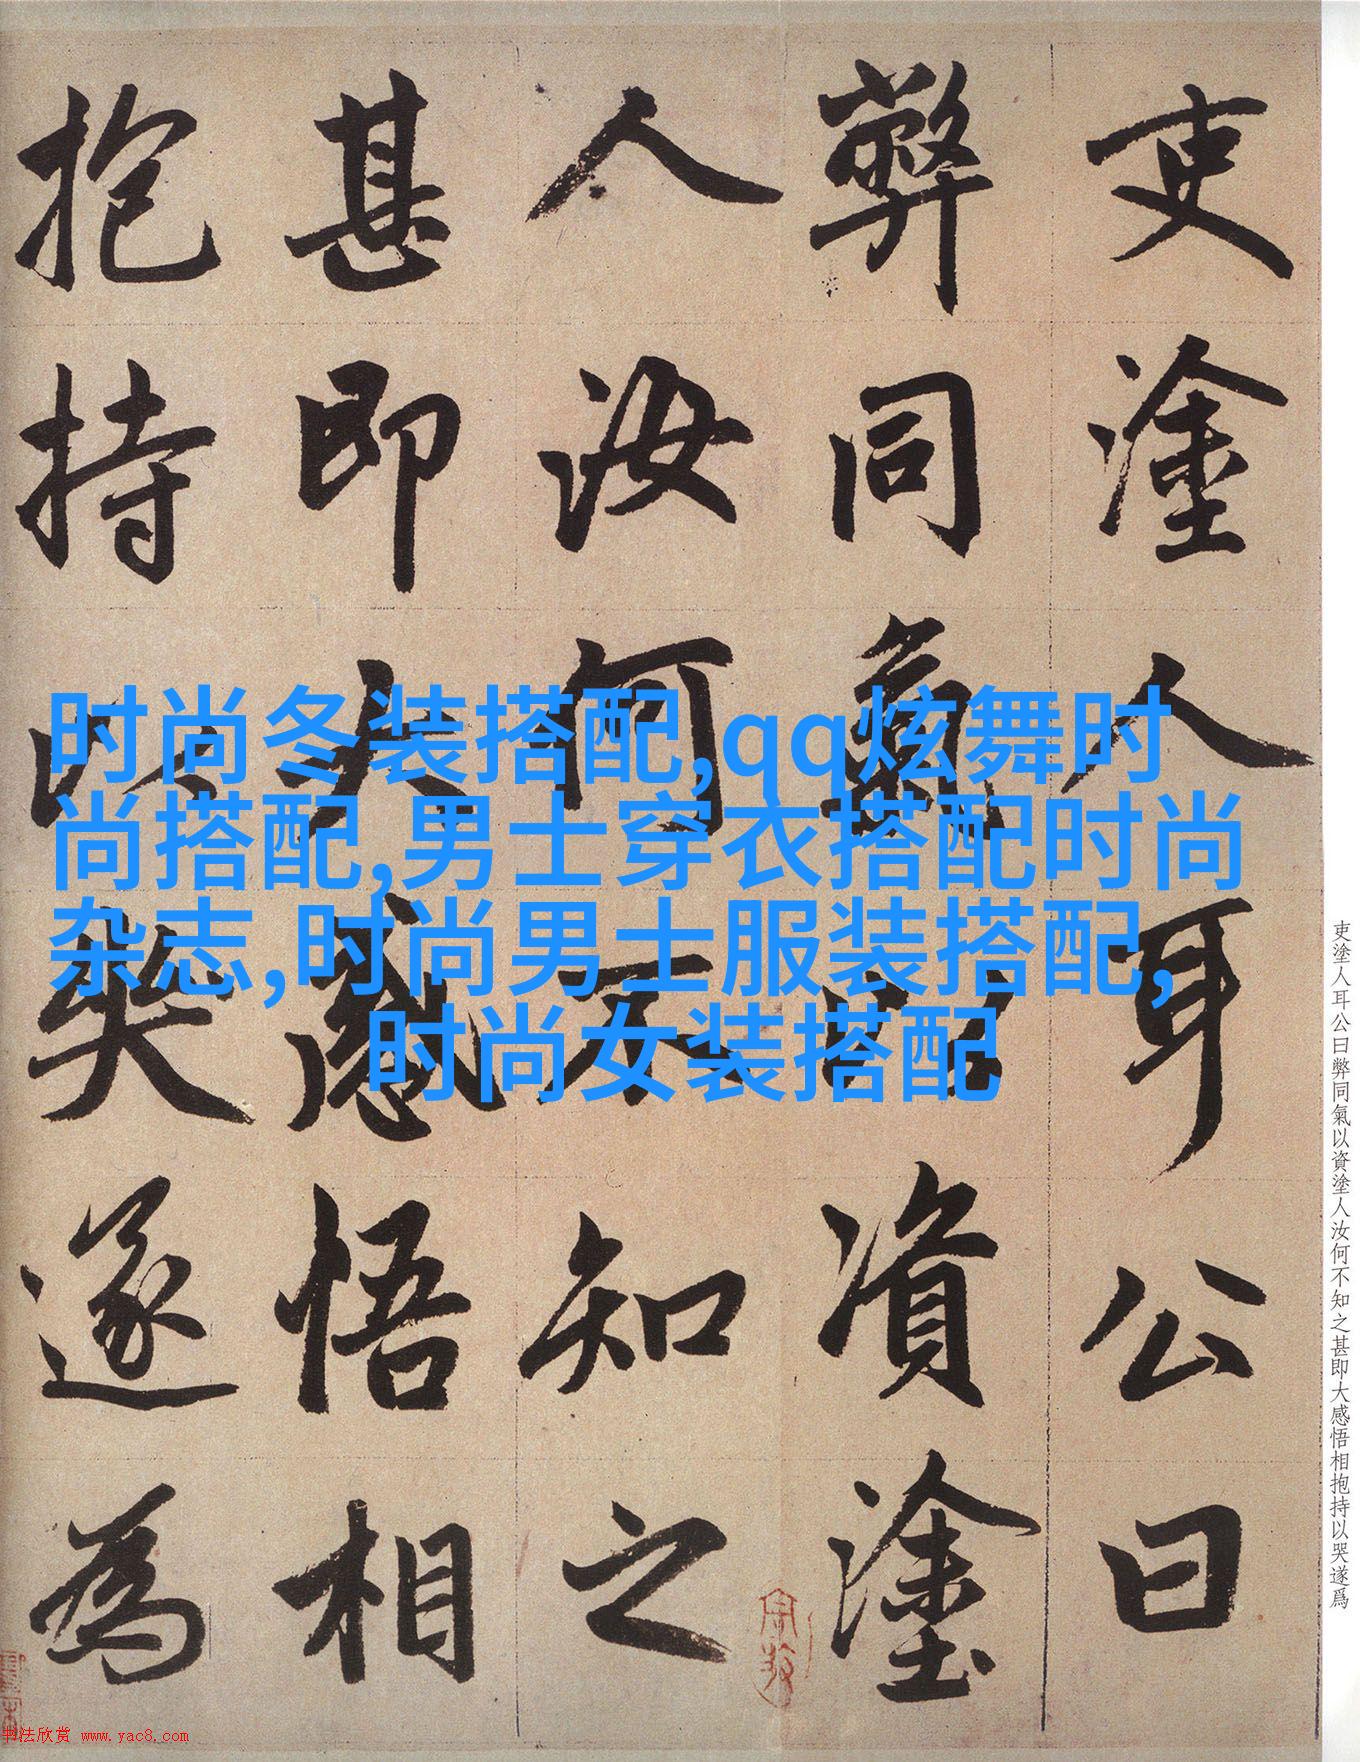 吏塗人耳公曰
弊同氣以資塗
人汝何不知之
甚即大感悟相
抱持以哭遂為
时尚冬装搭配,qq炫舞时
尚搭配,男士穿衣搭配时尚
杂志,时尚男士服装搭配,
时尚女装搭配
吏塗人耳公曰弊同氣以資塗人汝何不知之甚即大感悟相抱持以哭遂爲
书法欣赏 www.yac8.com